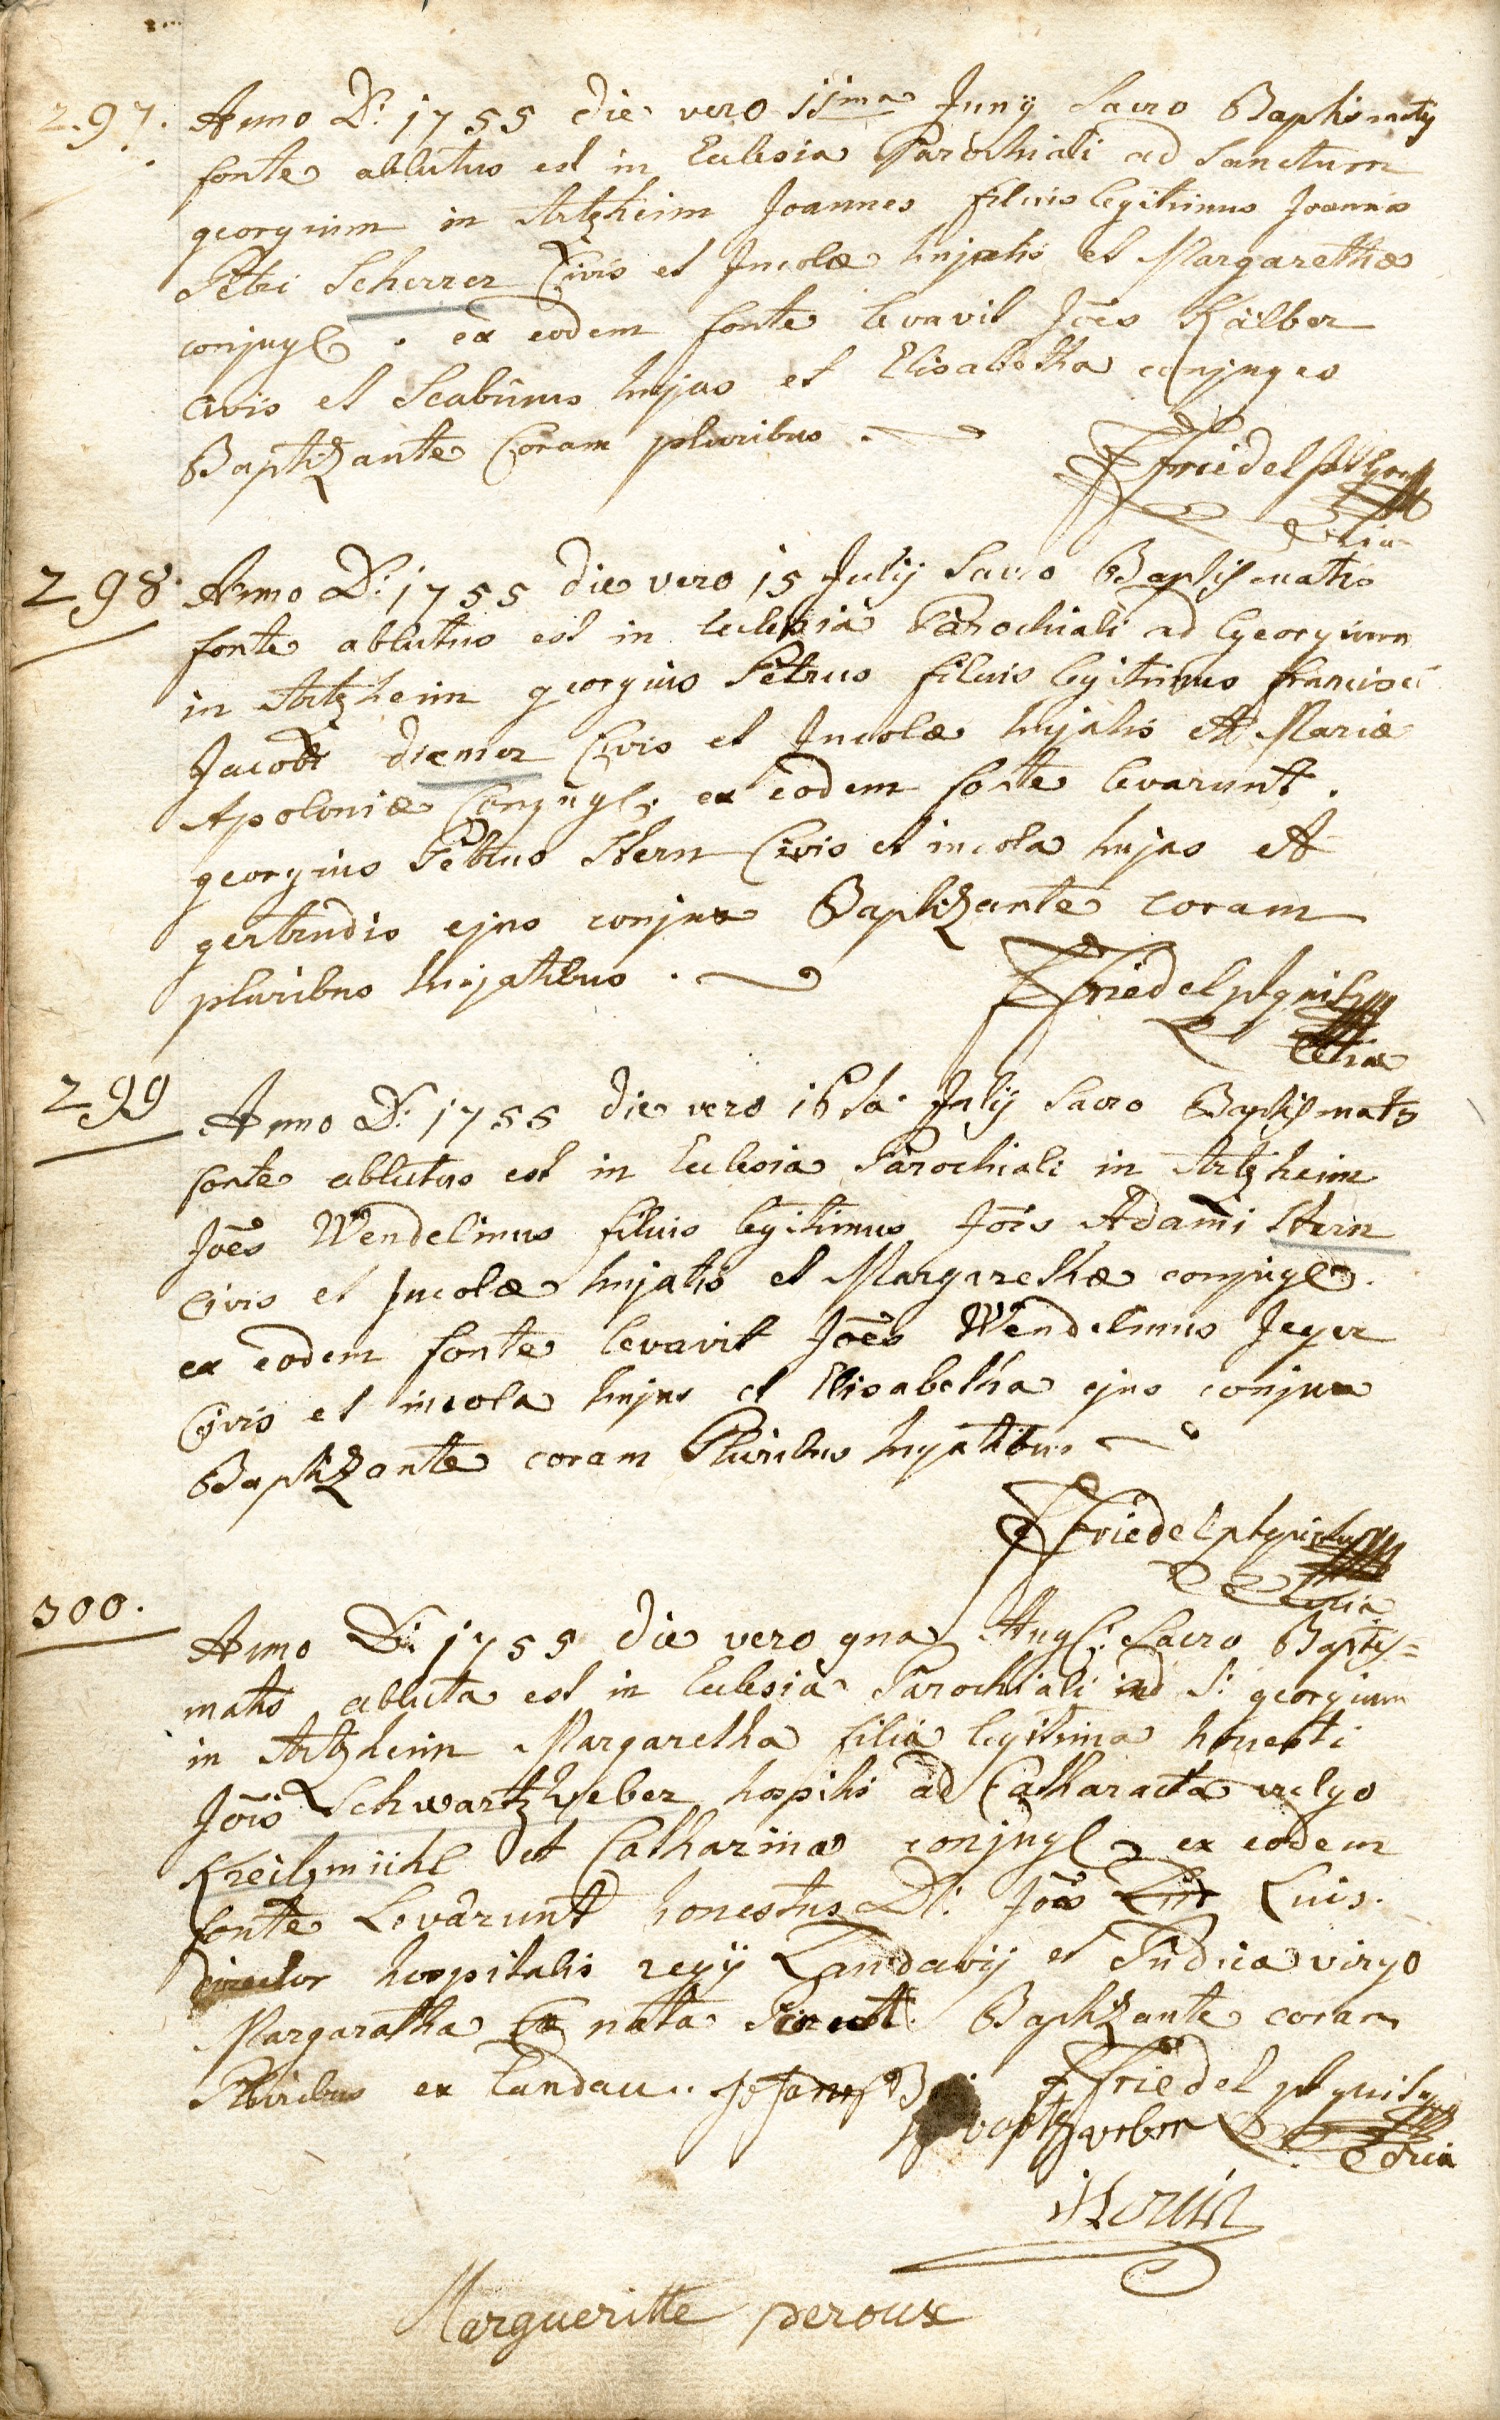 297. Anno D: 1755 die vero 11ma Junÿ Sacro Baptismatis
fonte ablutus est in Eclesia Parochiali ad Sanctum
georgium in Artzheim Joannes filius legitimus Joannis
Petri Scherrer Civis et Incolæ hujatis et Margarethæ
conjugū. ex eodem fonte levavit Jōes Kälber
Civis et Scabinus hujas et Elisabetha conjuges
Baptizante Coram pluribus.
Friedel
298. Anno D: 1755 die vero 15 Julij Sacro Baptismatis
fonte ablutus est in Eclesia Parochiali ad Georgium
in Artzheim georgius Petrus filius legitimus francisci
Jacobi diemer Civis et Incolæ hujatis et Mariæ
Apoloniæ Conjugū; ex eodem fonte levarunt.
georgius Petrus Stern Civis et incola hujas et
gertrudis ejus conjux Baptizante coram
pluribus hujatibus.
Friedel
299 Anno D: 1755 die vero 16ta Julij Sacro Baptismatis
fonte ablutus est in Eclesia Parochiali in Artzheim
Jōes Wendelinus filius legitimus Jōis Adami Stern
Civis et Incolæ hujatis et Margarethæ conjugū.
ex eodem fonte levavit Jōes Wendelinus Jeger
Civis et incola hujus et Elisabetha ejus conjux
Baptizante coram Pluribus hujatibus
Friedel
300. Anno D: 1755 die vero 9na Aug: Sacro Baptis=
matis abluta est in Eclesia Parochiali ad S: georgium
in Artzheim Margaretha filia legitima honesti
Jōis Schwartzweber hospitis ad Catharacta vulgo
Kreitzmühl et Catharina conjugū ex eodem
fonte Levarunt honestus D: Jōes Luis.
Director hospitalis regÿ Landavÿ et Pudica virgo
Margaratha nata Baptizante coram
Pluribus ex Landau.
Friedel
Margueritte peroux